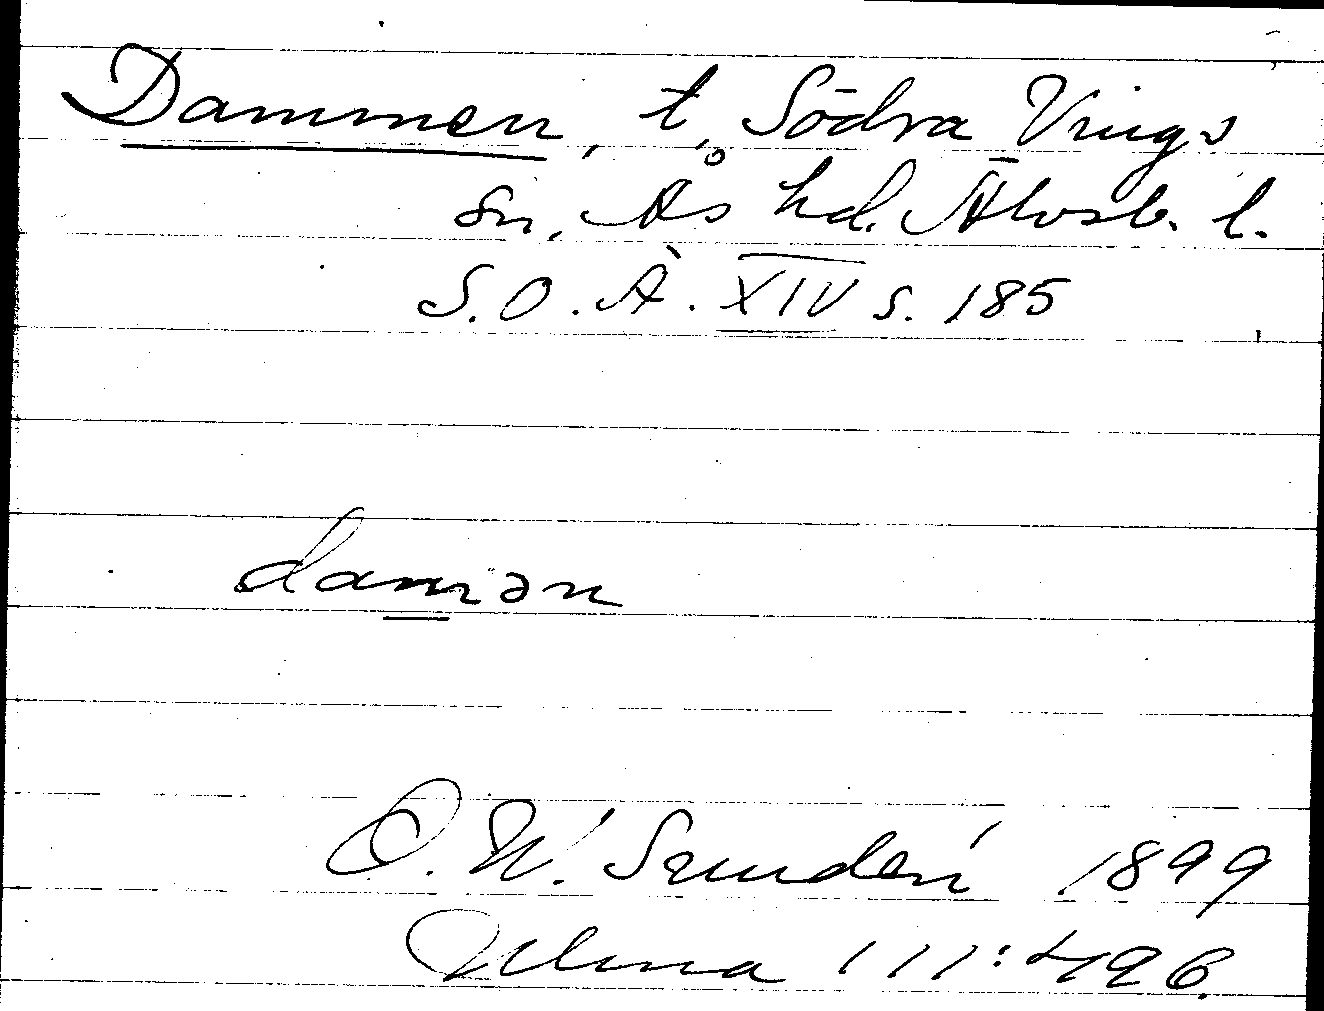 Dammen, t, Södra Vings
sn, Ås hd. Älvsb. l.
S.O.Ä. XIV s. 185
damən
O. W. Sundén 1899
Ulma 111:496